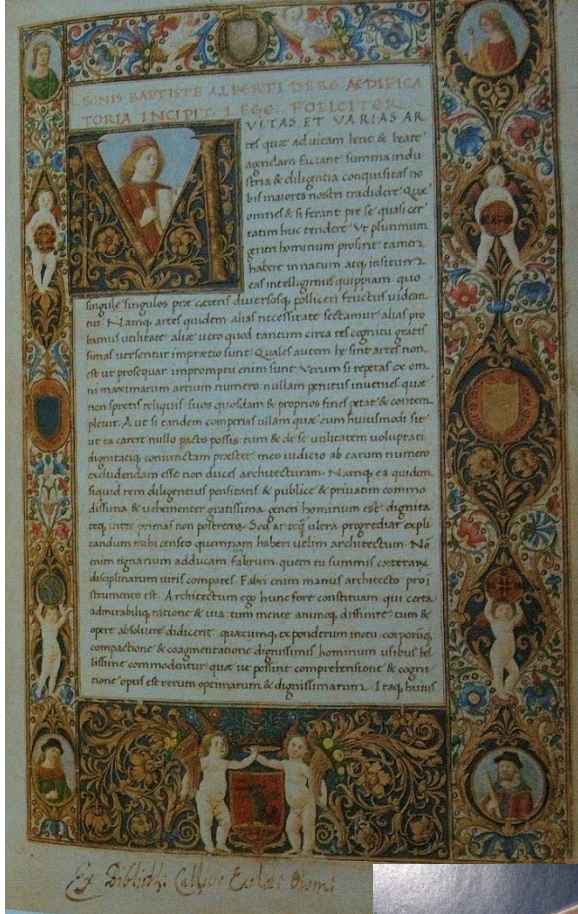 LEONIS BAPTISTE ALBERTI DE RE AEDIFICA
TORIA INCIPIT. LEGE FOELICITER
VLTAS ET VARIAS AR
tes quæ ad vitam bene & beate
agendam faciant summa indu
stria & diligentia conquisitas no
bis maiores nostri tradidere. Quæ
omnes & si ferant pre se quasi cer
tatim huc tendere Vt plurimum
generi hominum prosint: tamen
habere innatum atq; insitum
eas intelligimus quippiam quo
singulę singulos præ cæteris diversosq; polliceri fructus videan
tur. Namq; artes quidem alias necessitate sectamur: alias pro
bamus utilitate aliæ vero quod tantum circa res cognitu gratis
simas versentur in prætio sunt. Quales autem hę sint artes non
est ut prosequar in promptu enim sunt. Verum si repetas ex om
ni maximarum artium numero nullam penitus invenies quæ
non spretis reliquis suos quosdam & proprios fines petat & contem
pletur. Aut si tandem comperias ullam quæ cum huiusmodi sit
ut ea carere nullo pacto possis tum & de se utilitatem voluptati
dignitatiq; coniunctam præstet meo iudicio ab earum numero
excludendam esse non duces architecturam. Namq; ea quidem
siquid rem diligentius pensitaris & publice & privatim commo
dissima & vehementer gratissima generi hominum est: dignita
teq; inter primas non postrema. Sed ante q; ultra progrediar expli
candum mihi censeo quemnam haberi velim architectum. Nō
enim tignarium adducam fabrum quem tu summis cæterarum
disciplinarum viris compares. Fabri enim manus architecto pro i
strumento est. Architectum ego hunc fore constituam qui certa
admirabiliq; ratione & via tum mente animoq; diffinire tum &
opere absolvere didicerit quæcumq; ex ponderum motu corporūq;
compactione & coagmentatione dignissimis hominum usibus bel
lissime commodentur quæ ut possint comprehensione & cogni
tione opus est rerum optimarum & dignissimarum. Itaq; huius
Ex Biblioth: